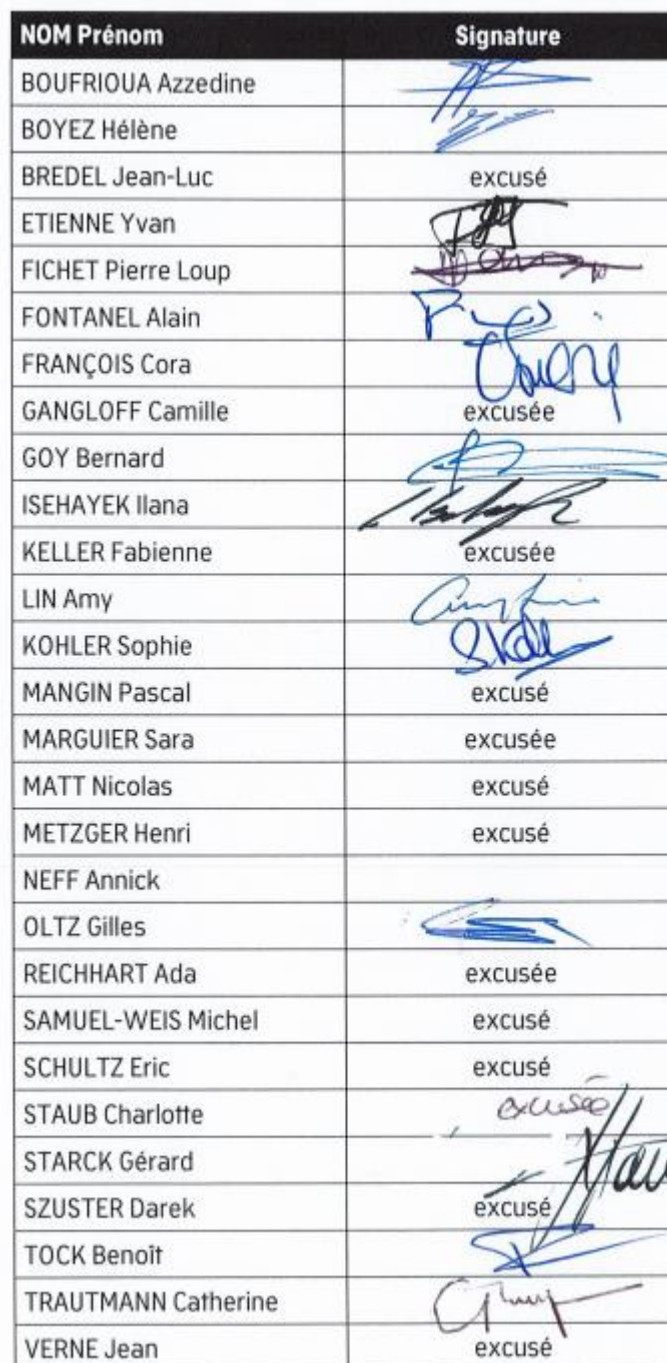 NOM Prénom Signature
BOUFRIOUA Azzedine
BOYEZ Hélène
BREDEL Jean-Luc excusé
ETIENNE Yvan
FICHET Pierre Loup
FONTANEL Alain
FRANÇOIS Cora
GANGLOFF Camille excusée
GOY Bernard
ISEHAYEK Ilana
KELLER Fabienne excusée
LIN Amy
KOHLER Sophie
MANGIN Pascal excusé
MARGUIER Sara excusée
MATT Nicolas excusé
METZGER Henri excusé
NEFF Annick
OLTZ Gilles
REICHHART Ada excusée
SAMUEL-WEIS Michel excusé
SCHULTZ Eric excusé
STAUB Charlotte excusée
STARCK Gérard
SZUSTER Darek excusé
TOCK Benoît
TRAUTMANN Catherine
VERNE Jean excusé